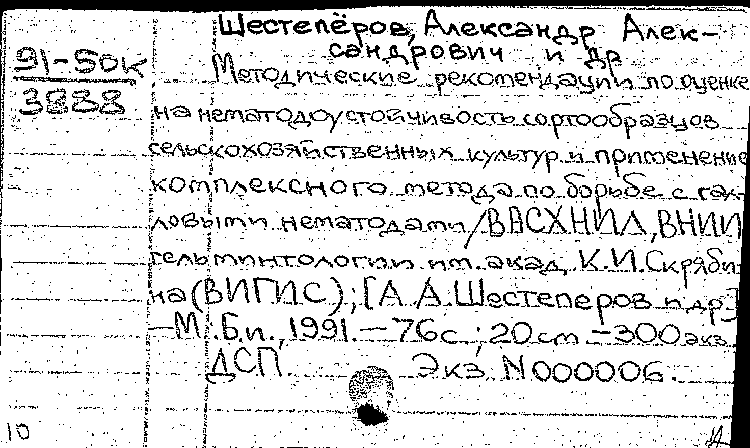 Шестепёров, Александр Алек-
сандрович и др
91-50к
3888
Методические рекомендации по оценке
на нематодоустойчивость сортообразцов
сельскохозяйственных культур и применение
комплексного метода по борьбе с гал-
ловыми нематодами/ВАСХНИЛ, ВНИИ
гельминтологии им. акад. К.И.Скряби-
на (ВИГИС); [А.А.Шестеперов и др]
-М.:Б.и., 1991.-76с.; 20 см -300экз.
ДСП. Экз. N000006.
10